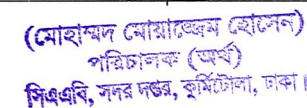 (মোহাম্মদ মোয়াজ্জেম হোসেন)
পরিচালক (অর্থ)
সিএএবি, সদর দপ্তর, কুর্মিটোলা, ঢাকা।